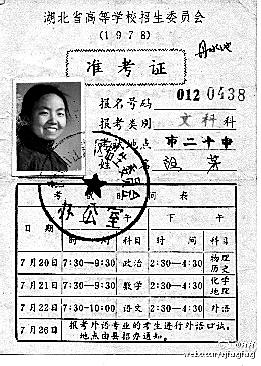 湖北省高等学校招生委员会
(1978)
准考证
报名号码 0120438
报考类别 文科 科
考试地点 市二十中
姓名
考试时间表
日期 上午 下午
时间 科目 时间 科目
7月20日 7:30—9:30 政治 2:30—4:30 物理 历史
7月21日 7:30—9:30 数学 2:30—4:30 化学 地理
7月22日 7:30—10:00 语文 2:30—4:30 外语
7月26日 报考外语专业的考生进行外语口试,
地点由县招办通知。
办公室